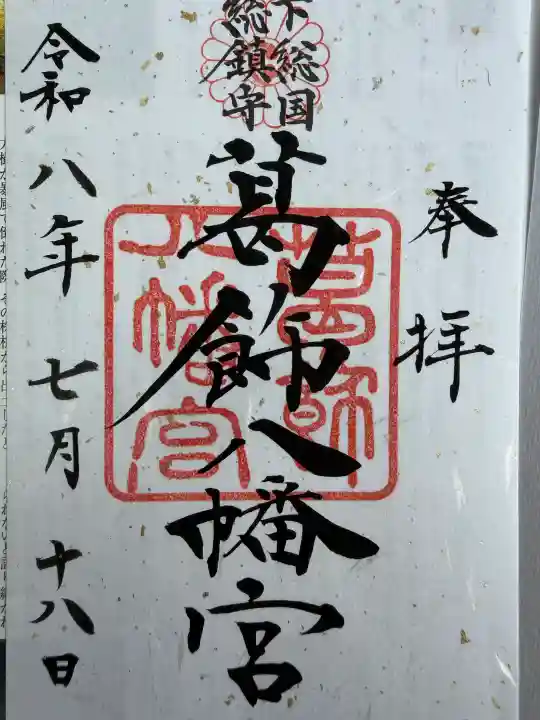 奉拝
下総国
総鎮守
葛飾八幡宮
葛飾
八幡宮
令和八年七月十八日